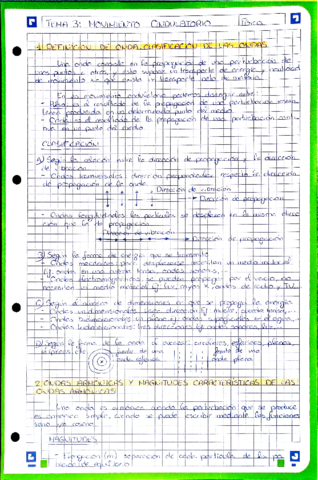 TEMA 3: MOVIMIENTO ONDULATORIO Física
1. DEFINICIÓN DE ONDA. CLASIFICACIÓN DE LAS ONDAS
Una onda consiste en la propagación de una perturbación de
unos puntos a otros, y esto supone un transporte de energía y cantidad
de movimiento sin que exista un transporte neto de materia.
En los movimientos ondulatorios podemos distinguir entre:
- Pulso: es el resultado de la propagación de una perturbación
producida en un determinado punto del medio
- Onda: es el resultado de la propagación de una perturbación
en un punto del medio
CLASIFICACIÓN
A) Según la relación entre la dirección de propagación y la dirección
de vibración
- Ondas transversales: dirección perpendicular respecto la dirección
de propagación de la onda.
Dirección de vibración
Dirección de propagación
- Ondas longitudinales: las partículas se desplazan en la misma
que la de propagación
Dirección de vibración
Dirección de propagación
B) Según la forma de energía que se transmite
- Ondas mecánicas: para desplazarse necesitan un medio material
Ej: onda en una cuerda tensa, ondas sonoras,
- Ondas electromagnéticas: se pueden propagar por el vacío, no
necesitan un medio material Ej: luz, rayos X, ondas de radio, TV.
C) Según el número de dimensiones en que se propaga la energía
- Ondas unidimensionales: una dirección Ej: muelle, cuerda tensa,
- Ondas bidimensionales: un plano Ej: ondas superficiales en el agua
- Ondas tridimensionales: tres direcciones Ej: ondas sonoras, luz
D) Según la forma de la onda al avanzar: circulares, esféricas, planas,
frente de una frente de una
onda esférica onda plana
2. ONDAS ARMÓNICAS Y MAGNITUDES CARACTERÍSTICAS DE LAS
ONDAS ARMÓNICAS
Una onda es armónica cuando la perturbación que se produce
es armónica simple, siendo se puede escribir mediante las funciones
seno y/o coseno.
MAGNITUDES
- Elongación (m): separación de cada partícula de la
de equilibrio